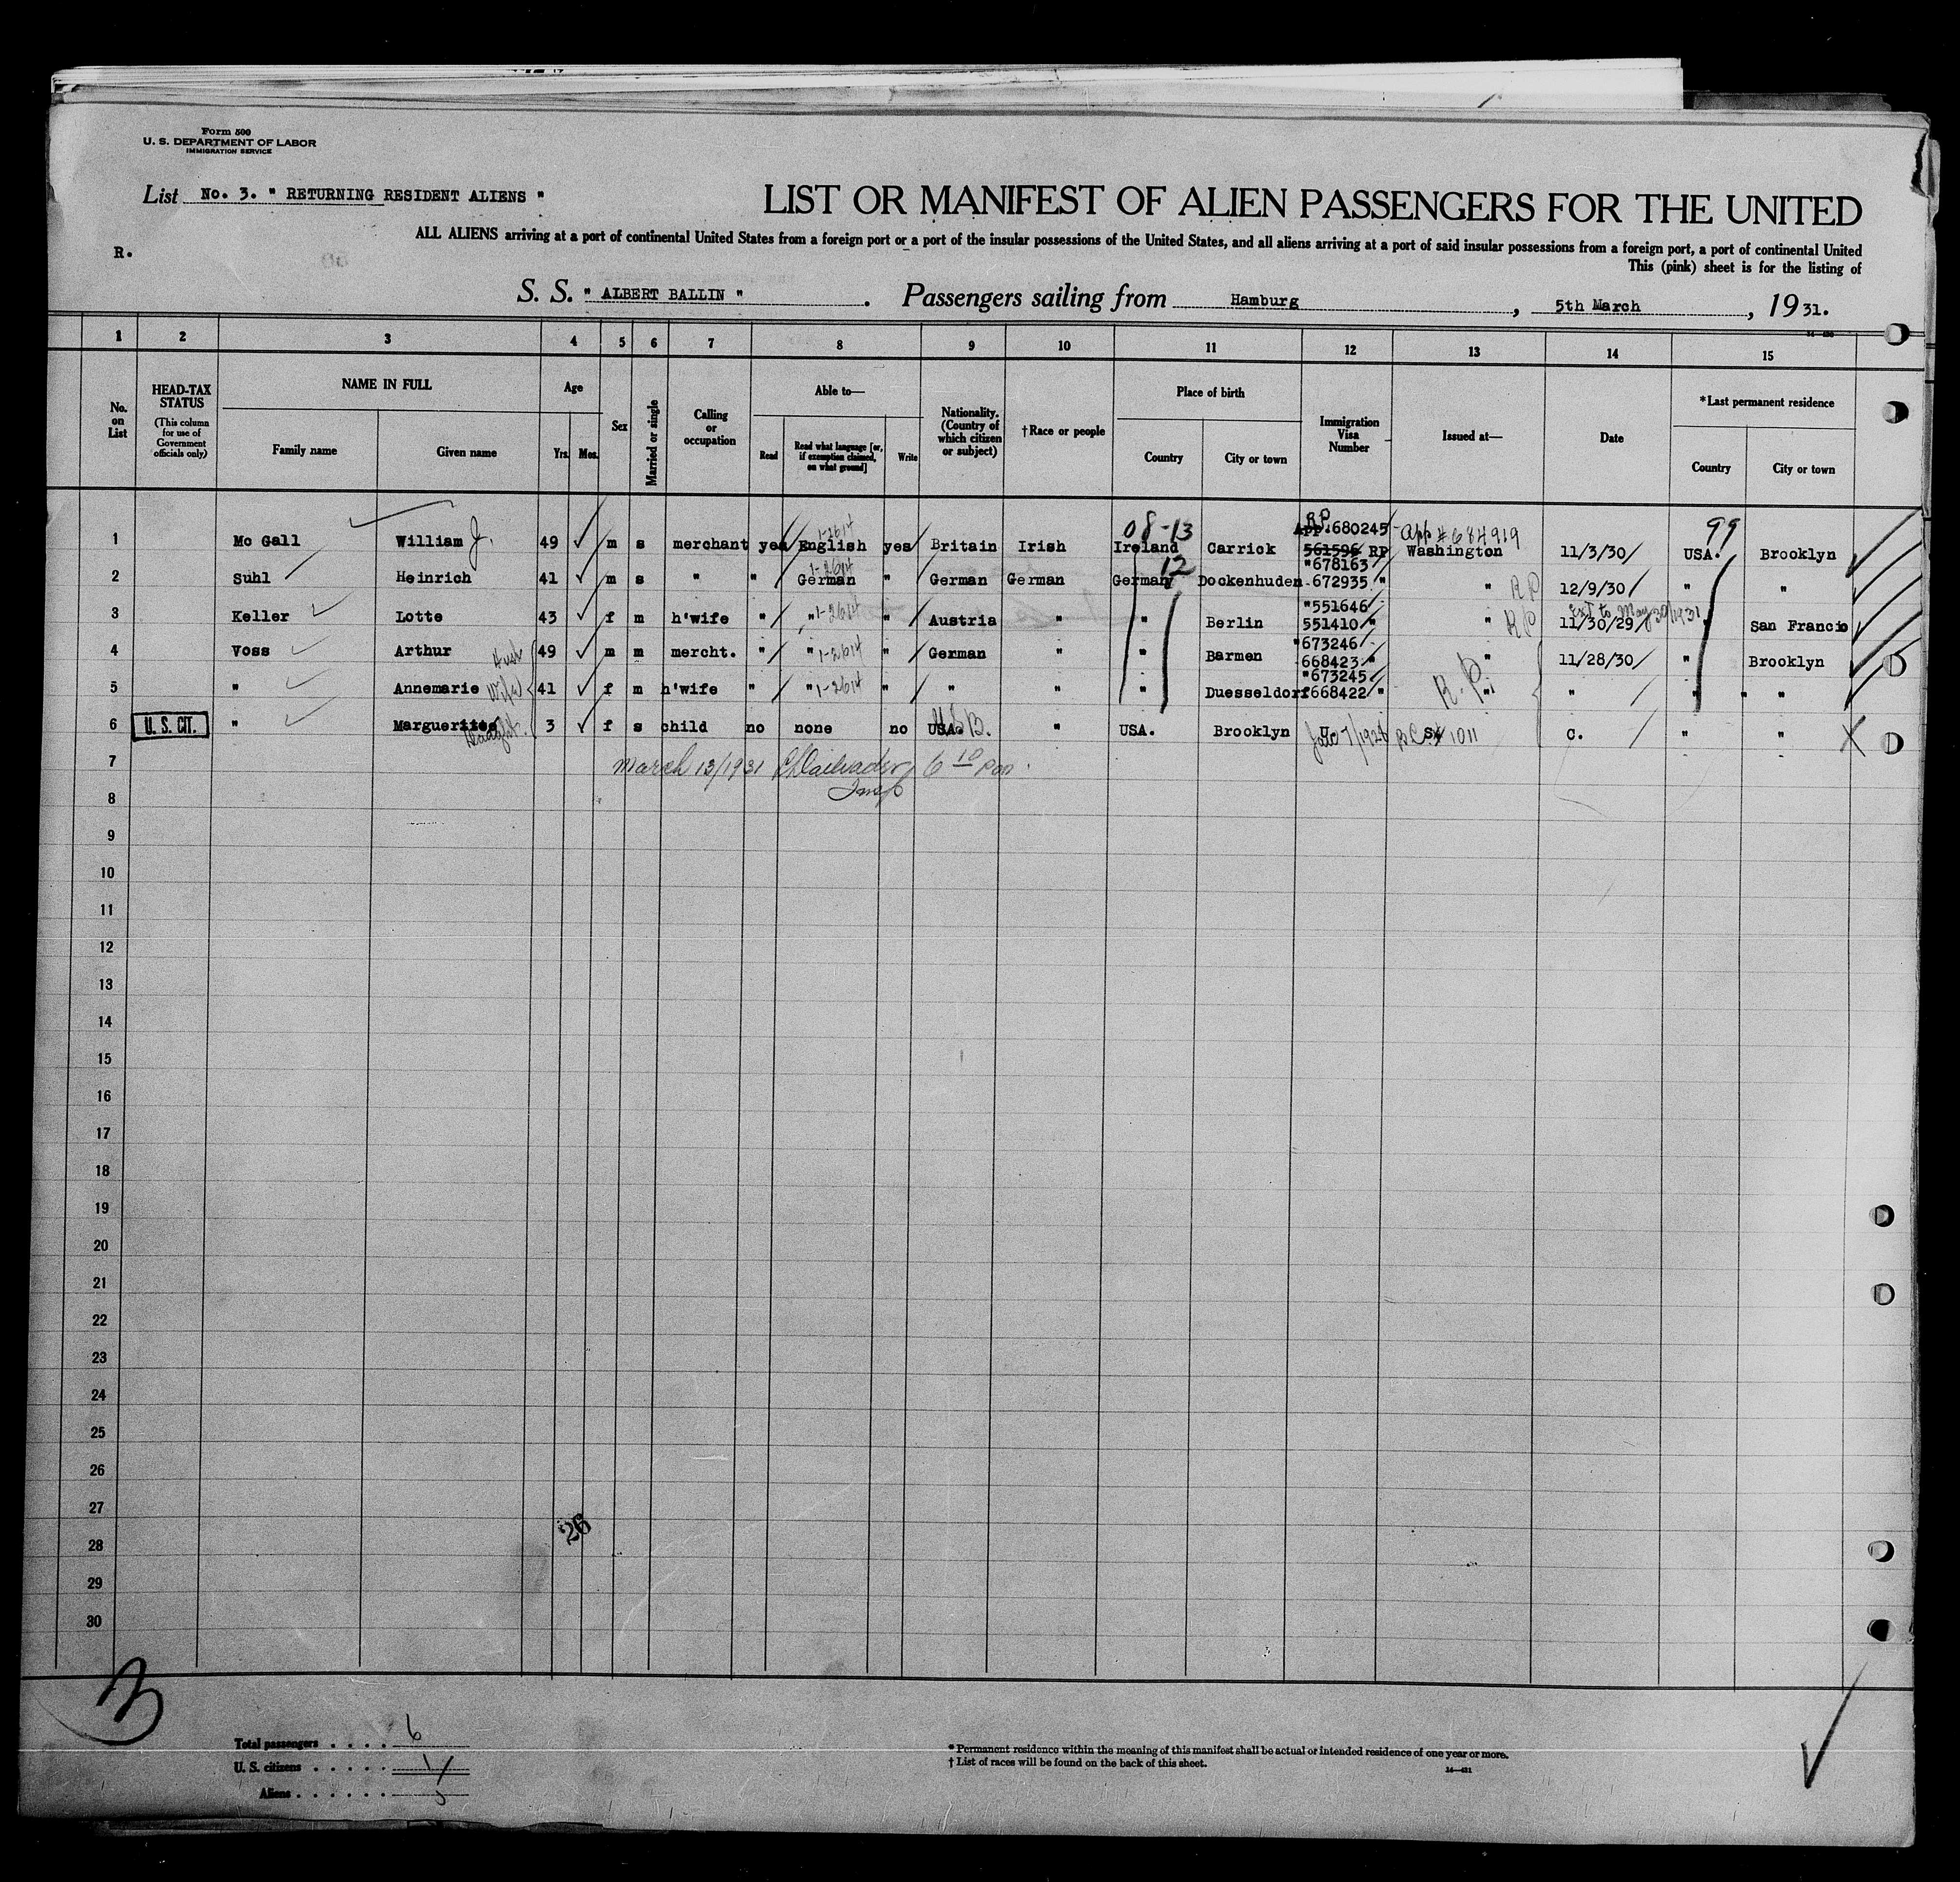 Form 500
U. S. DEPARTMENT OF LABOR
IMMIGRATION SERVICE
List No. 3. " RETURNING RESIDENT ALIENS "
LIST OR MANIFEST OF ALIEN PASSENGERS FOR THE UNITED
ALL ALIENS arriving at a port of continental United States from a foreign port or a port of the insular possessions of the United States, and all aliens arriving at a port of said insular possessions from a foreign port, a port of continental United
R.
This (pink) sheet is for the listing of
S. S. " ALBERT BALLIN " . Passengers sailing from Hamburg , 5th March , 19 31.
1 2 3 4 5 6 7 8 9 10 11 12 13 14 15
No. on List
HEAD-TAX STATUS (This column for use of Government officials only)
NAME IN FULL
Family name Given name
Age
Yrs. Mos.
Sex
Married or single
Calling or occupation
Able to—
Read Read what language [or, if exemption claimed, on what ground] Write
Nationality. (Country of which citizen or subject)
†Race or people
Place of birth
Country City or town
Immigration Visa Number
Issued at—
Date
*Last permanent residence
Country City or town
08-13 RP 99
1 Mc Gall William J. 49 m s merchant yes English yes Britain Irish Ireland Carrick App.680245 561596 RP App # 684919 Washington 11/3/30 USA. Brooklyn
12
2 Suhl Heinrich 41 m s " " German " German German Germany Dockenhuden "678163 672935 " " RP 12/9/30 " "
3 Keller Lotte 43 f m h'wife " " " Austria " " Berlin "551646 551410 " " RP Ext to May 30/1931 11/30/29 " San Francio
4 Voss Arthur Husb 49 m m mercht. " " " German " " Barmen "673246 668423 " " 11/28/30 " Brooklyn
5 " Annemarie Wife 41 f m h'wife " " " " " " Duesseldorf "673245 668422 " R.P. " " " "
6 U. S. CIT. " Marguerite Daught. 3 f s child no none no USA. " USA. Brooklyn 1011 C. " "
7 March 13/1931 6 10 pm
8 Insp
9
10
11
12
13
14
15
16
17
18
19
20
21
22
23
24
25
26
27
26
28
29
30
3
Total passengers . . . . 6
U. S. citizens . . . . . 1
Aliens . . . . . . 5
* Permanent residence within the meaning of this manifest shall be actual or intended residence of one year or more.
† List of races will be found on the back of this sheet.
14—431